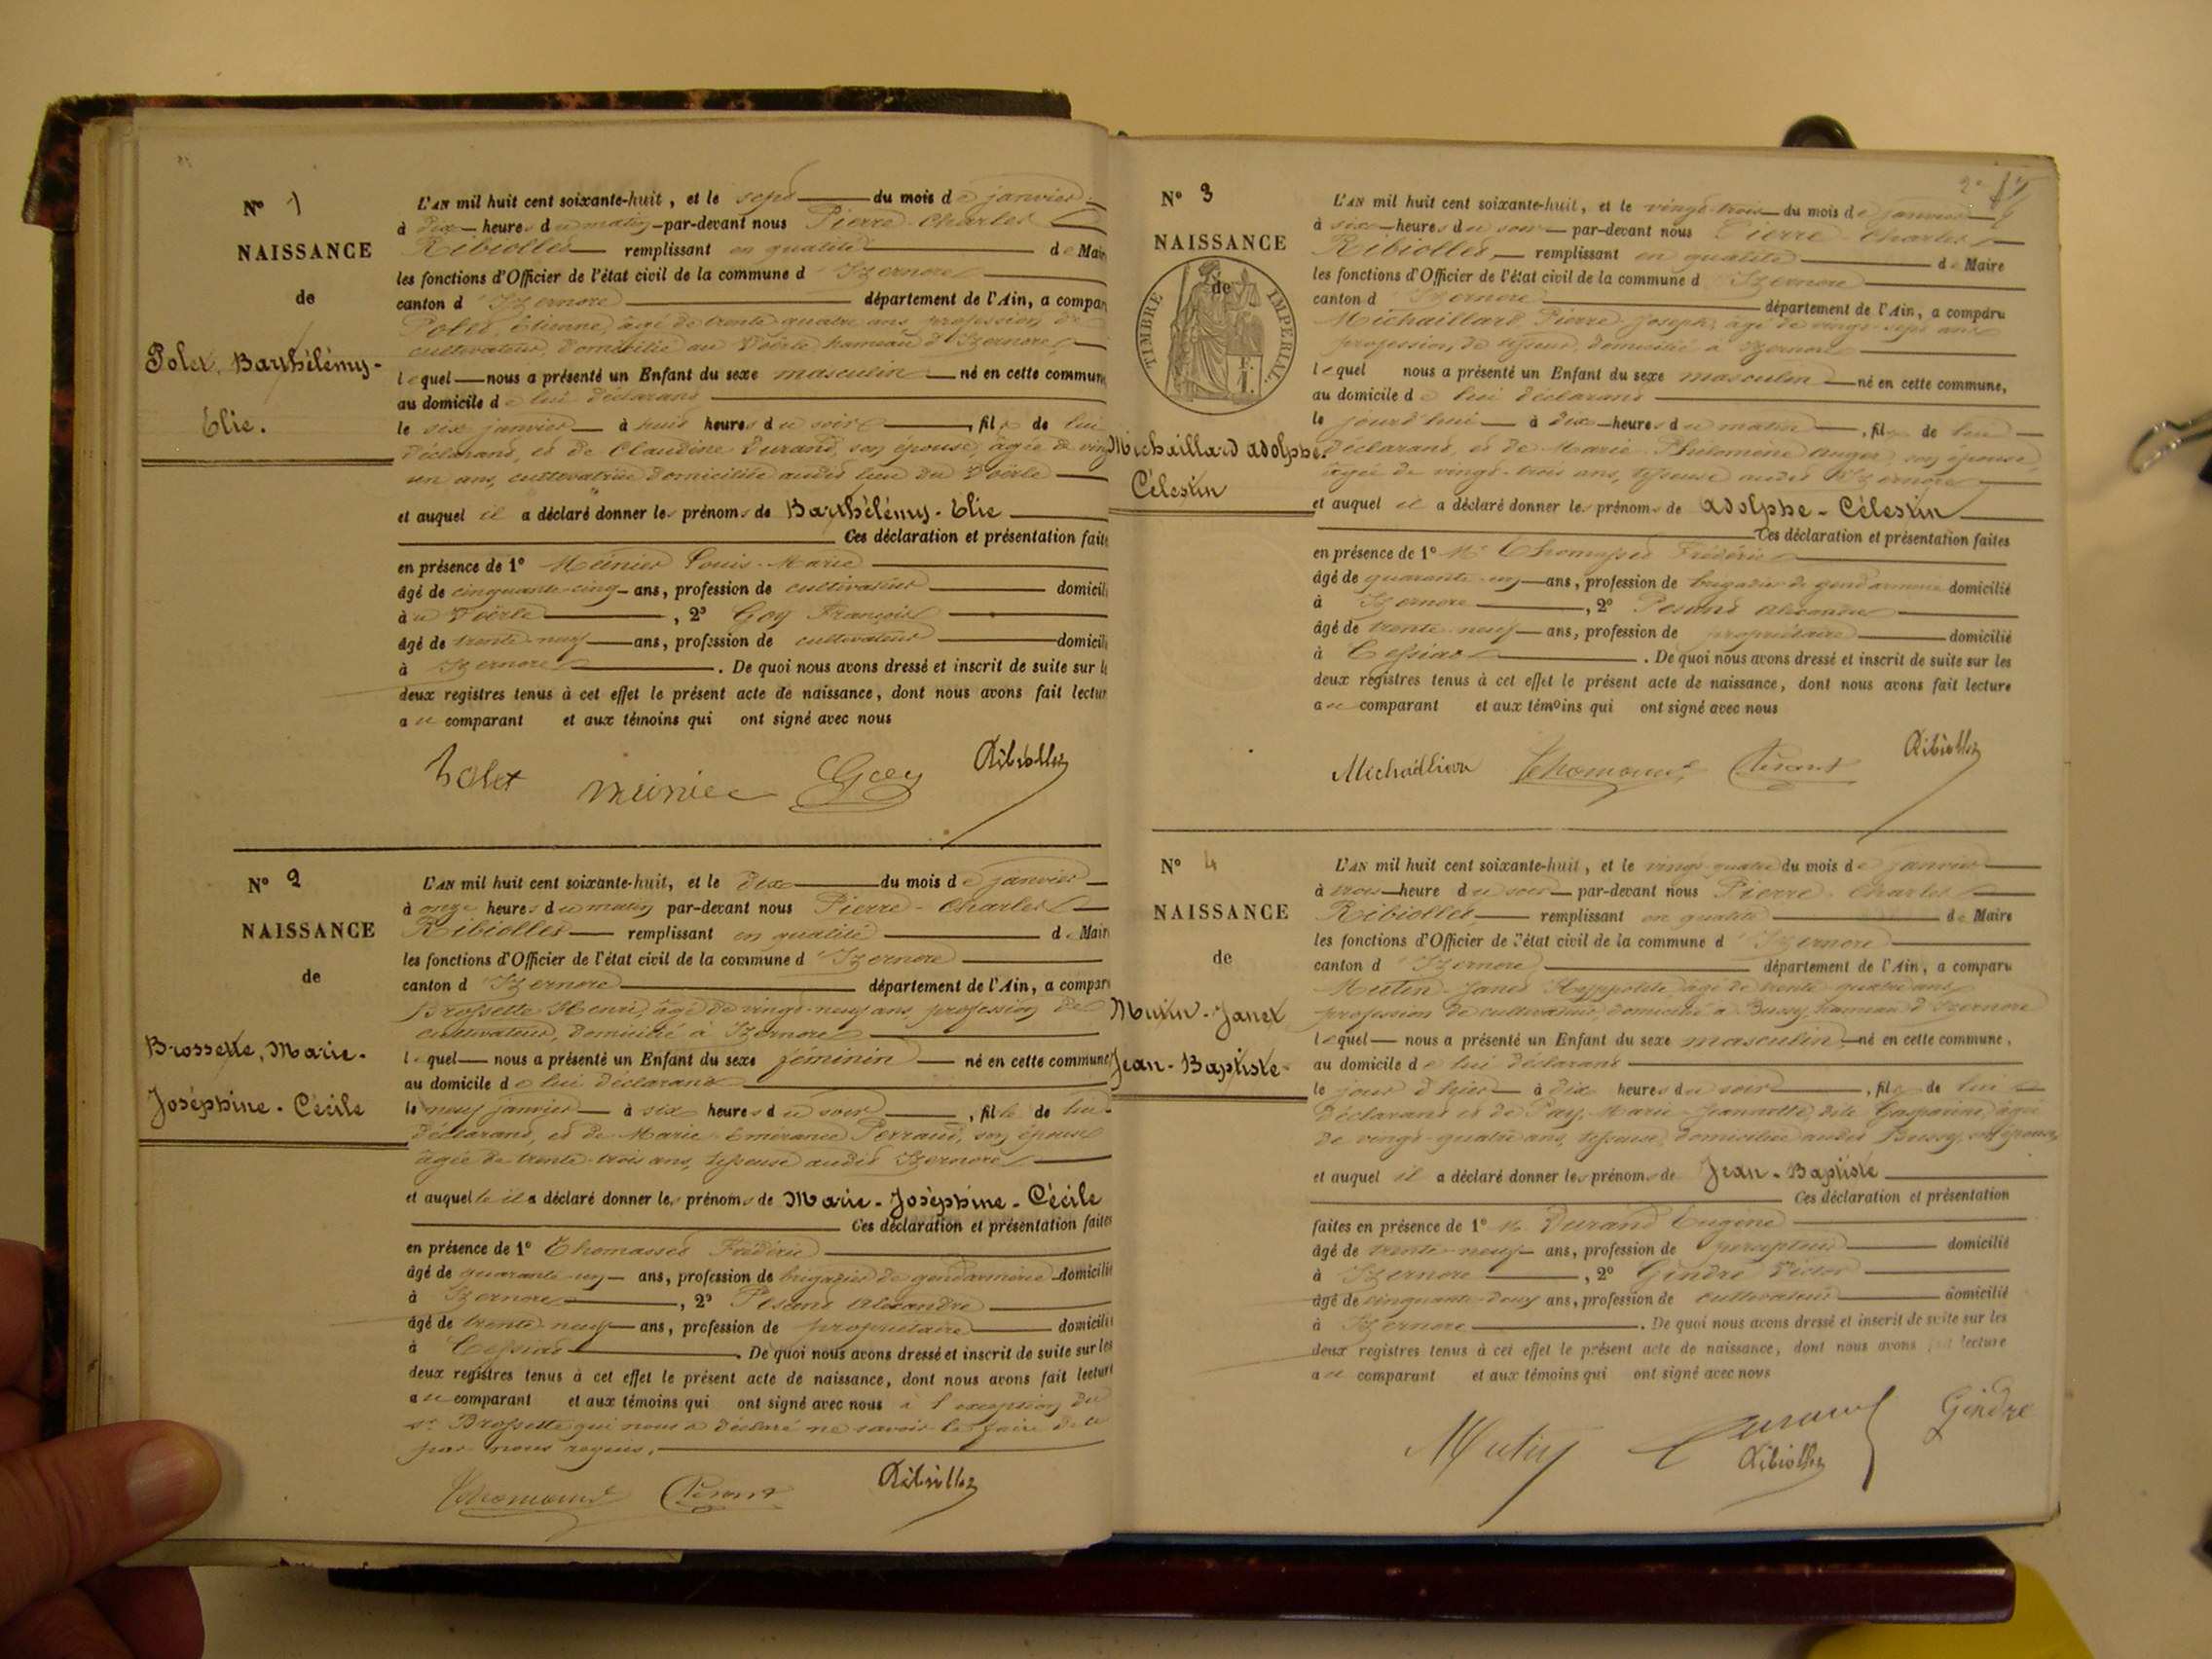 N° 1
NAISSANCE
de
Polet, Barthélémy-
Elie.
L'AN mil huit cent soixante-huit, et le sept du mois de janvier
à dix heures du matin par-devant nous Pierre-Charles
Ribiollet remplissant en qualité de Maire
les fonctions d'Officier de l'état civil de la commune d'Izernore
canton d'Izernore département de l'Ain, a compar
Polet, Etienne, âgé de trente quatre ans, profession de
cultivateur, domicilié au Voërle, hameau d'Izernore,
lequel nous a présenté un Enfant du sexe masculin né en cette commune
au domicile de lui déclarant
le six janvier à huit heures du soir, fils de lui
déclarant, et de Claudine Durand, son épouse, âgée de vingt
un ans, cultivatrice domiciliée audit lieu du Voërle
et auquel il a déclaré donner les prénoms de Barthélémy-Elie
Ces déclaration et présentation faites
en présence de 1° Meunier Louis-Marie
âgé de cinquante-cinq ans, profession de cultivateur domicil
à u Voërle, 2° Goy François
âgé de trente-neuf ans, profession de cultivateur domicil
à Izernore. De quoi nous avons dressé et inscrit de suite sur l
deux registres tenus à cet effet le présent acte de naissance, dont nous avons fait lectur
au comparant et aux témoins qui ont signé avec nous
Polet Meinier Goy Ribiollet
N° 2
NAISSANCE
de
Brossette, Marie-
Joséphine-Cécile
L'AN mil huit cent soixante-huit, et le dix du mois de janvier
à onze heures du matin par-devant nous Pierre-Charles
Ribiollet remplissant en qualité de Maire
les fonctions d'Officier de l'état civil de la commune d'Izernore
canton d'Izernore département de l'Ain, a compar
Brossette Henri, âgé de vingt-neuf ans, profession de
cultivateur, domicilié à Izernore
lequel nous a présenté un Enfant du sexe féminin né en cette commune
au domicile de lui déclarant
le neuf janvier à six heures du soir, fille de lui
déclarant, et de Marie Emérance Perraud, son épouse
âgée de trente-trois ans, tisseuse audit Izernore
et auquelle il a déclaré donner les prénoms de Marie-Joséphine-Cécile
Ces déclaration et présentation faites
en présence de 1° Thomasset Frédéric
âgé de quarante-un ans, profession de brigadier de gendarmerie domicilié
à Izernore, 2° Pesant Alexandre
âgé de trente neuf ans, profession de propriétaire domicilié
à Cessiat. De quoi nous avons dressé et inscrit de suite sur les
deux registres tenus à cet effet le présent acte de naissance, dont nous avons fait lecture
au comparant et aux témoins qui ont signé avec nous à l'exception du
sr Brossette qui nous a déclaré ne savoir le faire de ce
par nous requis.
Thomasset Pesant Ribiollet
N° 3
NAISSANCE
de
TIMBRE IMPERIAL
Michaillard Adolphe-
Célestin
L'AN mil huit cent soixante-huit, et le vingt-trois du mois de janvier
à six heures du soir par-devant nous Pierre-Charles
Ribiollet, remplissant en qualité de Maire
les fonctions d'Officier de l'état civil de la commune d'Izernore
canton d'Izernore département de l'Ain, a comparu
Michaillard, Pierre-Joseph, âgé de vingt-sept ans
profession de tisseur, domicilié à Izernore
lequel nous a présenté un Enfant du sexe masculin né en cette commune,
au domicile de lui déclarant
le jourd'hui à dix heures du matin, fils de lui
déclarant, et de Marie Philomène Auger, son épouse,
âgée de vingt-trois ans, tisseuse audit Izernore
et auquel il a déclaré donner les prénoms de Adolphe-Célestin
Ces déclaration et présentation faites
en présence de 1° Mr Thomasset Frédéric
âgé de quarante-un ans, profession de brigadier de gendarmerie domicilié
à Izernore, 2° Pesant Alexandre
âgé de trente-neuf ans, profession de propriétaire domicilié
à Cessiat. De quoi nous avons dressé et inscrit de suite sur les
deux registres tenus à cet effet le présent acte de naissance, dont nous avons fait lecture
au comparant et aux témoins qui ont signé avec nous
Michaillard Thomasset Pesant Ribiollet
N° 4
NAISSANCE
de
Mutin-Janet
Jean-Baptiste-
L'AN mil huit cent soixante-huit, et le vingt-quatre du mois de janvier
à trois heure du soir par-devant nous Pierre-Charles
Ribiollet, remplissant en qualité de Maire
les fonctions d'Officier de l'état civil de la commune d'Izernore
canton d'Izernore département de l'Ain, a comparu
Mutin-Janet Hyppolite âgé de trente-quatre ans
profession de cultivateur, domicilié à Bussy, hameau d'Izernore
lequel nous a présenté un Enfant du sexe masculin né en cette commune,
au domicile de lui déclarant
le jour d'hier à dix heures du soir, fils de lui
déclarant et de Pay, Marie Jeannette, dite Gasparine, âgée
de vingt-quatre ans, tisseuse, domiciliée audit Bussy, son épouse,
et auquel il a déclaré donner les prénoms de Jean-Baptiste
Ces déclaration et présentation
faites en présence de 1° Mr Durand Eugène
âgé de trente-neuf ans, profession de percepteur domicilié
à Izernore, 2° Gindre Victor
âgé de cinquante-deux ans, profession de cultivateur domicilié
à Izernore. De quoi nous avons dressé et inscrit de suite sur les
deux registres tenus à cet effet le présent acte de naissance, dont nous avons fait lecture
au comparant et aux témoins qui ont signé avec nous
Mutin Durand Gindre
Ribiollet